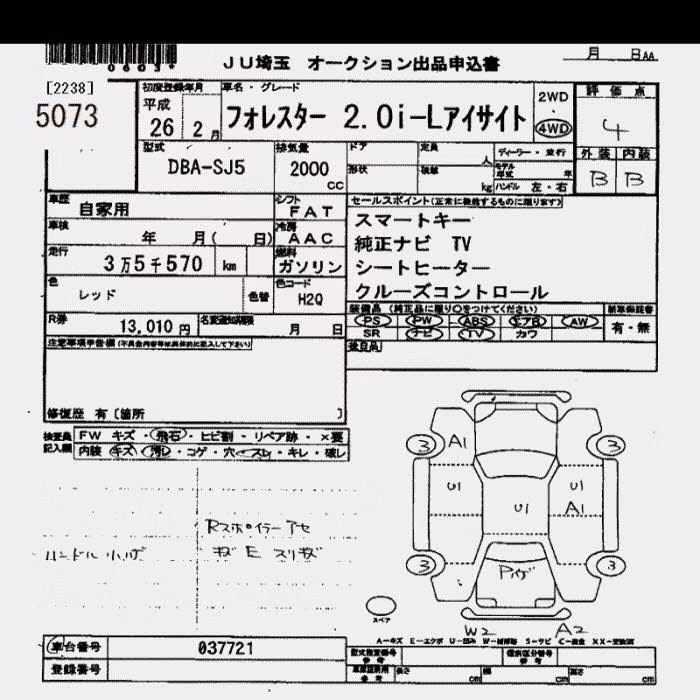 0603*
JU埼玉 オークション出品申込書
月 日AA
[2238]
5073
初度登録年月
平成
26 2 月
車名・グレード
フォレスター 2.0i-Lアイサイト
2WD
4WD
評価点
4
外装 内装
B B
型式
DBA-SJ5
排気量
2000
cc
ドア
形状
定員
人
積載
kg
ディーラー・並行
モデル
年式 年
ハンドル 左・右
車歴
自家用
シフト
FAT
車検
年 月( 日)
冷房
AAC
走行
3万5千570 km
燃料
ガソリン
色
レッド
色替
色コード
H2Q
R券
13,010 円
名変通知期限
月 日
セールスポイント(正常に機能するものに限ります)
スマートキー
純正ナビ TV
シートヒーター
クルーズコントロール
装備品 (純正品に限り○をつけてください)
PS PW ABS エアB AW
SR ナビ TV カワ
新車保証書
有・無
後日品
注意事項申告欄(不具合内容等は具体的に記入して下さい)
修復歴 有 [箇所 ]
検査員
記入欄
FW キズ・飛石・ヒビ割・リペア跡・×要
内装 キズ・汚レ・コゲ・穴・スレ・キレ・破レ
Rスポイラーアセ
ハンドル小ハゲ
キズ E スリキズ
3 A1 3
U1 U1 U1
A1
3 Pハゲ 3
スペア
W2 A2
A−キズ E−エクボ U−凹み W−補修跡 S−サビ C−腐食 XX−交換済
車台番号
037721
登録番号
型式指定番号
参考
類別区分番号
参考
車庫証明用
参考
長さ cm
幅 cm
高さ cm